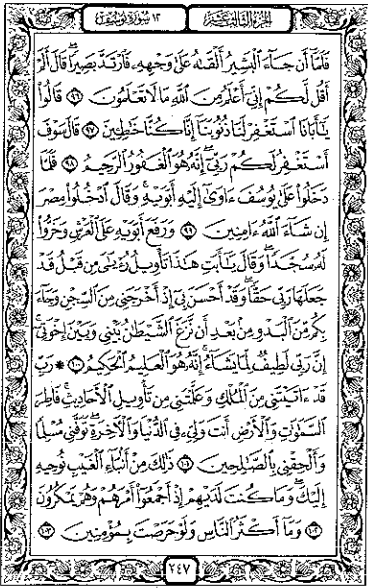 الجزء الثالث عشر ١٣ سورة يوسف
فَلَمَّا أَن جَاءَ الْبَشِيرُ أَلْقَىٰهُ عَلَىٰ وَجْهِهِ فَارْتَدَّ بَصِيرًا قَالَ أَلَمْ
أَقُل لَّكُمْ إِنِّي أَعْلَمُ مِنَ اللَّهِ مَا لَا تَعْلَمُونَ ٩٦ قَالُوا
يَٰأَبَانَا اسْتَغْفِرْ لَنَا ذُنُوبَنَا إِنَّا كُنَّا خَٰطِـِٔينَ ٩٧ قَالَ سَوْفَ
أَسْتَغْفِرُ لَكُمْ رَبِّي إِنَّهُ هُوَ الْغَفُورُ الرَّحِيمُ ٩٨ فَلَمَّا
دَخَلُوا عَلَىٰ يُوسُفَ ءَاوَىٰ إِلَيْهِ أَبَوَيْهِ وَقَالَ ادْخُلُوا مِصْرَ
إِن شَاءَ اللَّهُ ءَامِنِينَ ٩٩ وَرَفَعَ أَبَوَيْهِ عَلَى الْعَرْشِ وَخَرُّوا
لَهُ سُجَّدًا وَقَالَ يَٰأَبَتِ هَٰذَا تَأْوِيلُ رُءْيَٰيَ مِن قَبْلُ قَدْ
جَعَلَهَا رَبِّي حَقًّا وَقَدْ أَحْسَنَ بِي إِذْ أَخْرَجَنِي مِنَ السِّجْنِ وَجَاءَ
بِكُم مِّنَ الْبَدْوِ مِن بَعْدِ أَن نَّزَغَ الشَّيْطَٰنُ بَيْنِي وَبَيْنَ إِخْوَتِي
إِنَّ رَبِّي لَطِيفٌ لِّمَا يَشَاءُ إِنَّهُ هُوَ الْعَلِيمُ الْحَكِيمُ ١٠٠ ۞ رَبِّ
قَدْ ءَاتَيْتَنِي مِنَ الْمُلْكِ وَعَلَّمْتَنِي مِن تَأْوِيلِ الْأَحَادِيثِ فَاطِرَ
السَّمَٰوَٰتِ وَالْأَرْضِ أَنتَ وَلِيِّۦ فِي الدُّنْيَا وَالْءَاخِرَةِ تَوَفَّنِي مُسْلِمًا
وَأَلْحِقْنِي بِالصَّٰلِحِينَ ١٠١ ذَٰلِكَ مِنْ أَنبَاءِ الْغَيْبِ نُوحِيهِ
إِلَيْكَ وَمَا كُنتَ لَدَيْهِمْ إِذْ أَجْمَعُوا أَمْرَهُمْ وَهُمْ يَمْكُرُونَ
١٠٢ وَمَا أَكْثَرُ النَّاسِ وَلَوْ حَرَصْتَ بِمُؤْمِنِينَ ١٠٣
٢٤٧